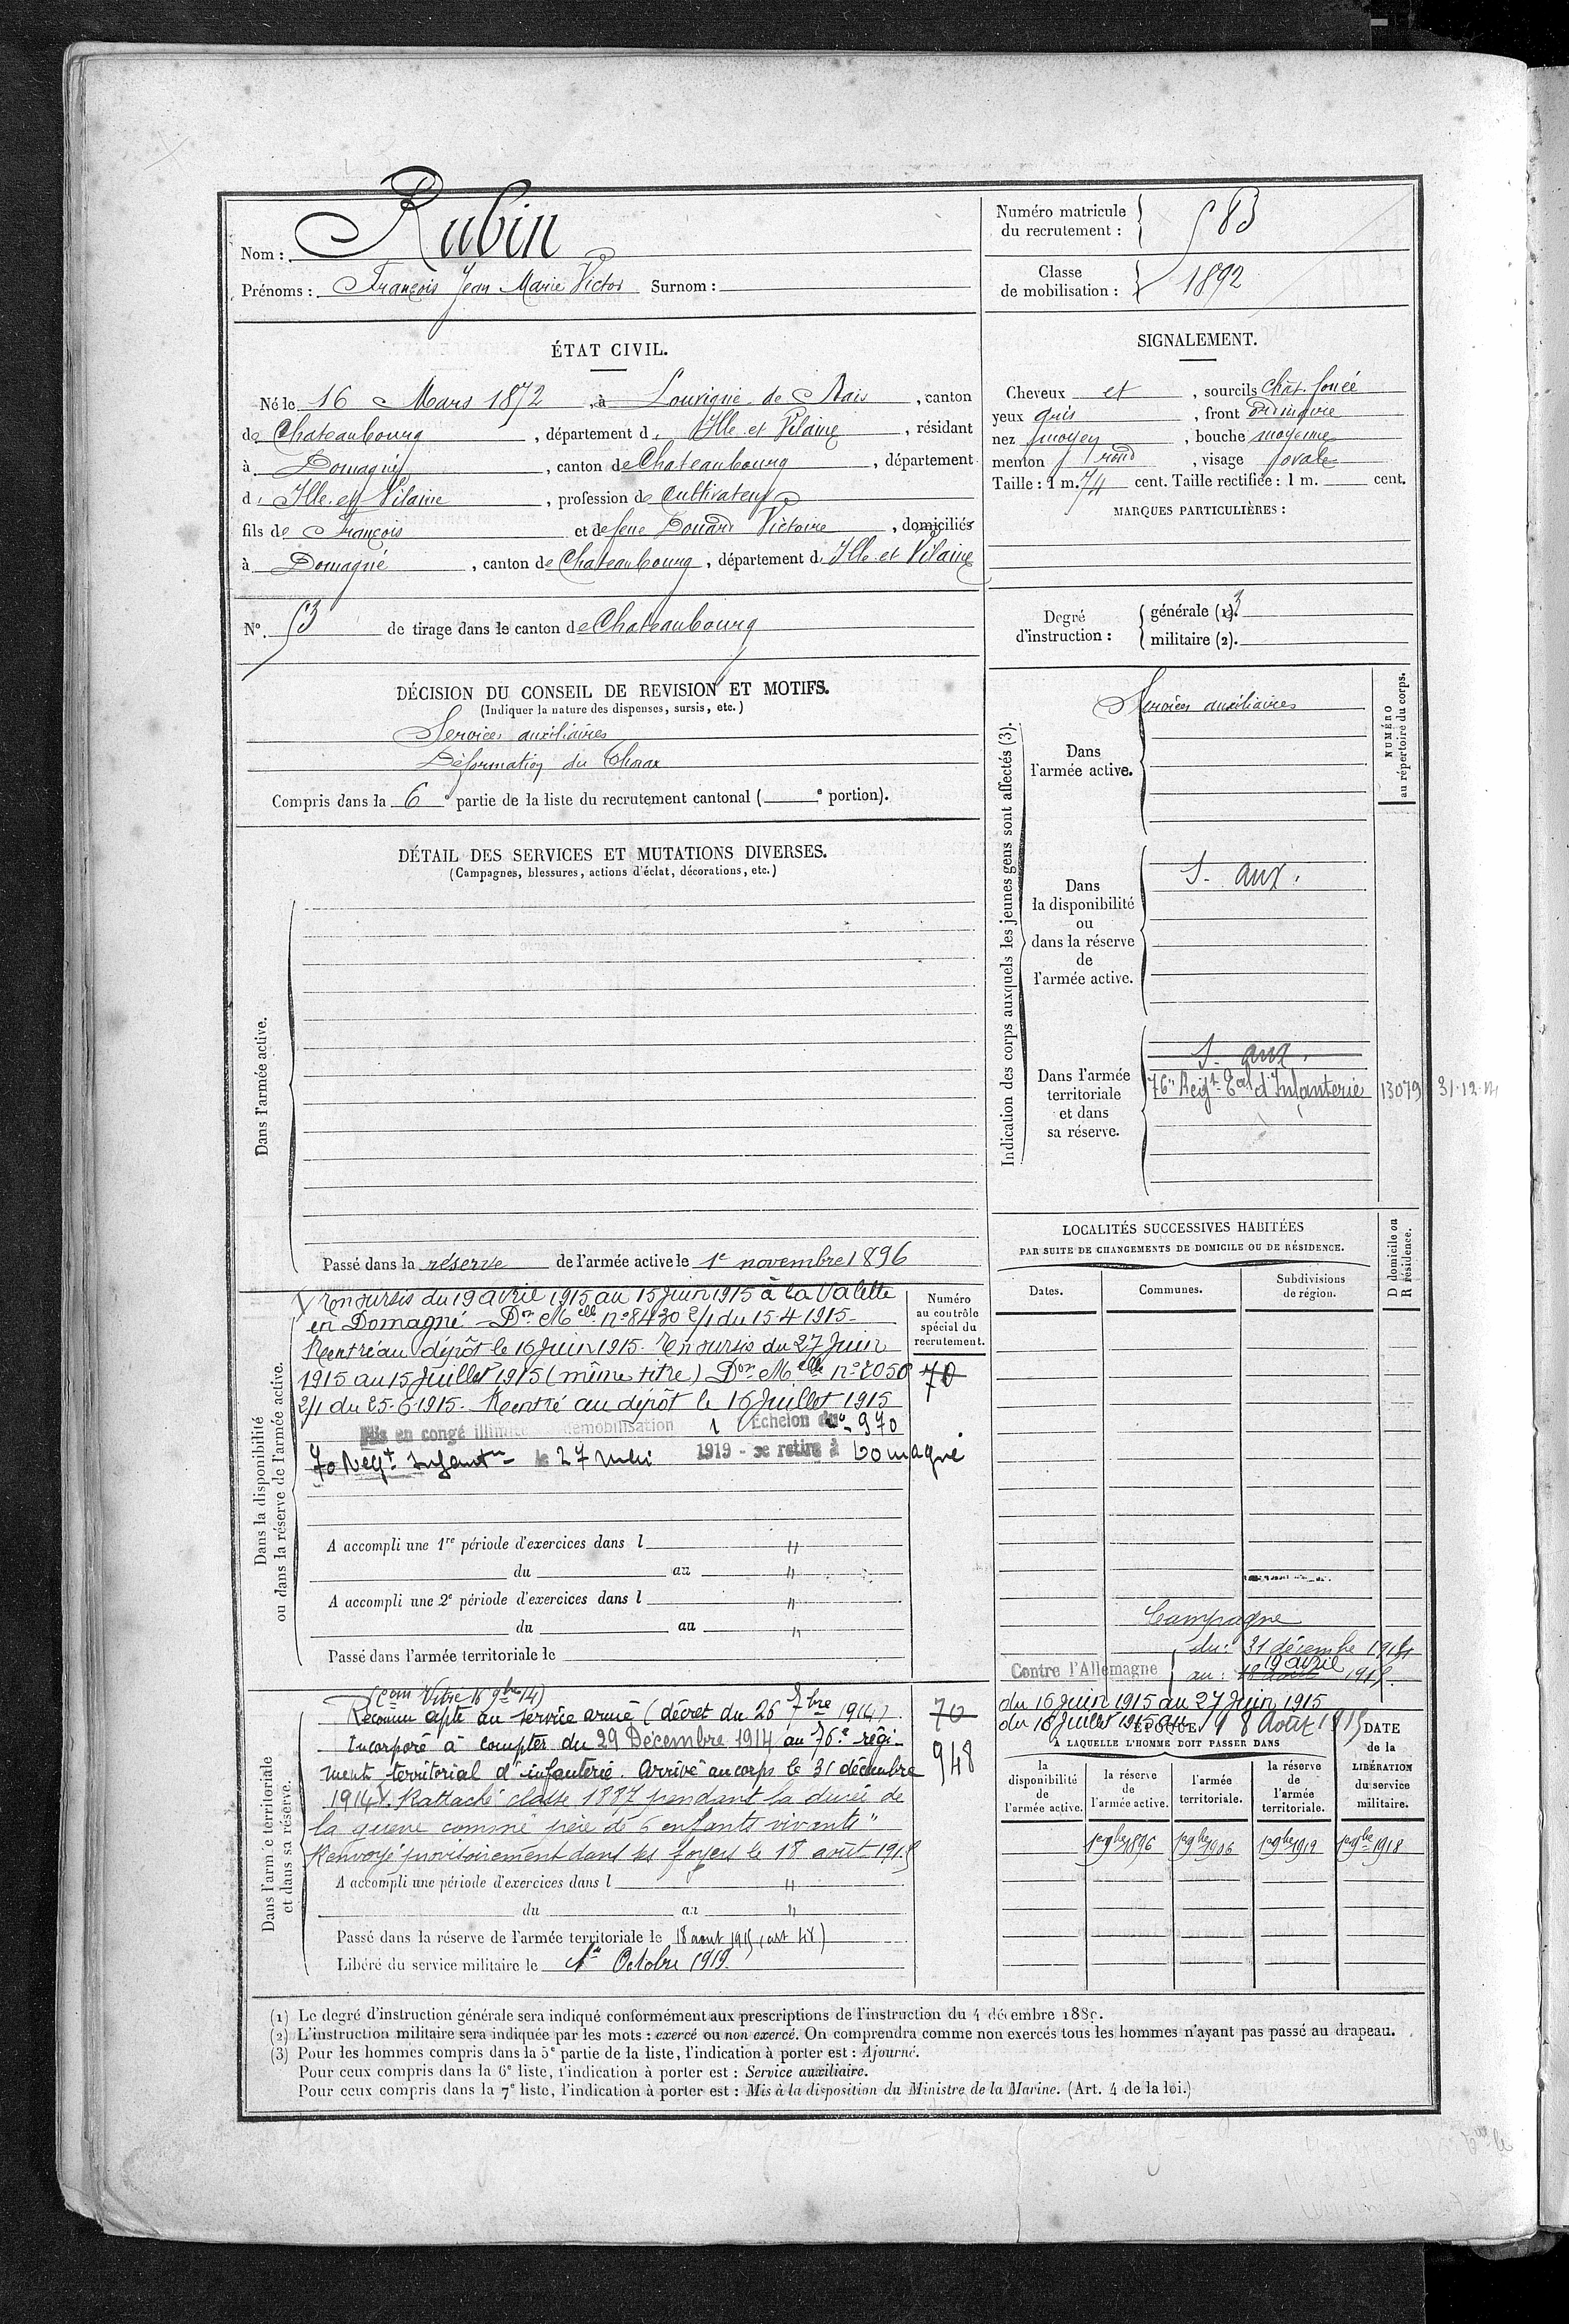 Nom : Rubin
Prénoms : François Jean Marie Victor Surnom :
Numéro matricule du recrutement : 583
Classe de mobilisation : 1892
ÉTAT CIVIL.
Né le 16 Mars 1872, à Louvigné de Bais, canton
de Chateaubourg, département d'Ille et Vilaine, résidant
à Domagné, canton de Chateaubourg, département
d'Ille et Vilaine, profession de Cultivateur
fils de François et de feue Douard Victoire, domiciliés
à Domagné, canton de Chateaubourg, département d'Ille et Vilaine
N° 53 de tirage dans le canton de Chateaubourg
SIGNALEMENT.
Cheveux et, sourcils chât. foncé
yeux gris, front ordinaire
nez moyen, bouche moyenne
menton rond, visage ovale
Taille : 1 m. 74 cent. Taille rectifiée : 1 m. cent.
MARQUES PARTICULIÈRES :
Degré d'instruction : générale (1). 3
militaire (2).
DÉCISION DU CONSEIL DE REVISION ET MOTIFS.
(Indiquer la nature des dispenses, sursis, etc.)
Services auxiliaires
Déformation du thorax
Compris dans la 6e partie de la liste du recrutement cantonal ( e portion).
DÉTAIL DES SERVICES ET MUTATIONS DIVERSES.
(Campagnes, blessures, actions d'éclat, décorations, etc.)
Dans l'armée active.
Passé dans la réserve de l'armée active le 1e novembre 1896
Indication des corps auxquels les jeunes gens sont affectés (3).
NUMÉRO au répertoire du corps.
Dans l'armée active.
Services auxiliaires
Dans la disponibilité ou dans la réserve de l'armée active.
S. aux.
Dans l'armée territoriale et dans sa réserve.
S. aux.
76e Regt Tal d'Infanterie 13079 31.12.14
Dans la disponibilité ou dans la réserve de l'armée active.
Numéro au contrôle spécial du recrutement.
En sursis du 19 avril 1915 au 15 juin 1915 à la Valette
en Domagné. Don Melle n° 8430 2/1 du 15-4-1915.
Rentré au dépôt le 16 Juin 1915. En sursis du 27 Juin
1915 au 15 Juillet 1915 (même titre) Don Melle n° 2050
2/1 du 25-6-1915. Rentré au dépôt le 16 Juillet 1915
70
Mis en congé illimité démobilisation 1 Echelon n° 970
70 Regt Infantie le 27 1919 - se retire à Domagné
A accompli une 1re période d'exercices dans l "
du au "
A accompli une 2e période d'exercices dans l "
du au "
Passé dans l'armée territoriale le
LOCALITÉS SUCCESSIVES HABITÉES
PAR SUITE DE CHANGEMENTS DE DOMICILE OU DE RÉSIDENCE.
Dates. Communes. Subdivisions de région. D domicile ou R résidence.
Campagne
Contre l'Allemagne du : 31 décembre 1914
au : 19 avril 1915.
du 16 juin 1915 au 27 Juin 1915
du 16 Juillet 1915 au 18 Août 1915
Dans l'armée territoriale et dans sa réserve.
(Com Vitré 16 9bre 14)
Reconnu apte au service armé (décret du 26 7bre 1914)
Incorporé à compter du 29 Décembre 1914 au 76e régi-
ment territorial d'infanterie. Arrivé au corps le 31 décembre
1914. Rattaché classe 1887 pendant la durée de
la guerre comme "père de 6 enfants vivants"
Renvoyé provisoirement dans ses foyers le 18 août 1915
70
948
A accompli une période d'exercices dans l "
du au "
Passé dans la réserve de l'armée territoriale le 18 aout 1915 (art 48)
Libéré du service militaire le 1er Octobre 1919.
ÉPOQUE
À LAQUELLE L'HOMME DOIT PASSER DANS
la disponibilité de l'armée active. la réserve de l'armée active. l'armée territoriale. la réserve de l'armée territoriale.
DATE de la LIBÉRATION du service militaire.
1er 9bre 1896 1er 9bre 1906 1er 9bre 1912 1er 9bre 1918
(1) Le degré d'instruction générale sera indiqué conformément aux prescriptions de l'instruction du 4 décembre 1889.
(2) L'instruction militaire sera indiquée par les mots : exercé ou non exercé. On comprendra comme non exercés tous les hommes n'ayant pas passé au drapeau.
(3) Pour les hommes compris dans la 5e partie de la liste, l'indication à porter est : Ajourné.
Pour ceux compris dans la 6e liste, l'indication à porter est : Service auxiliaire.
Pour ceux compris dans la 7e liste, l'indication à porter est : Mis à la disposition du Ministre de la Marine. (Art. 4 de la loi.)